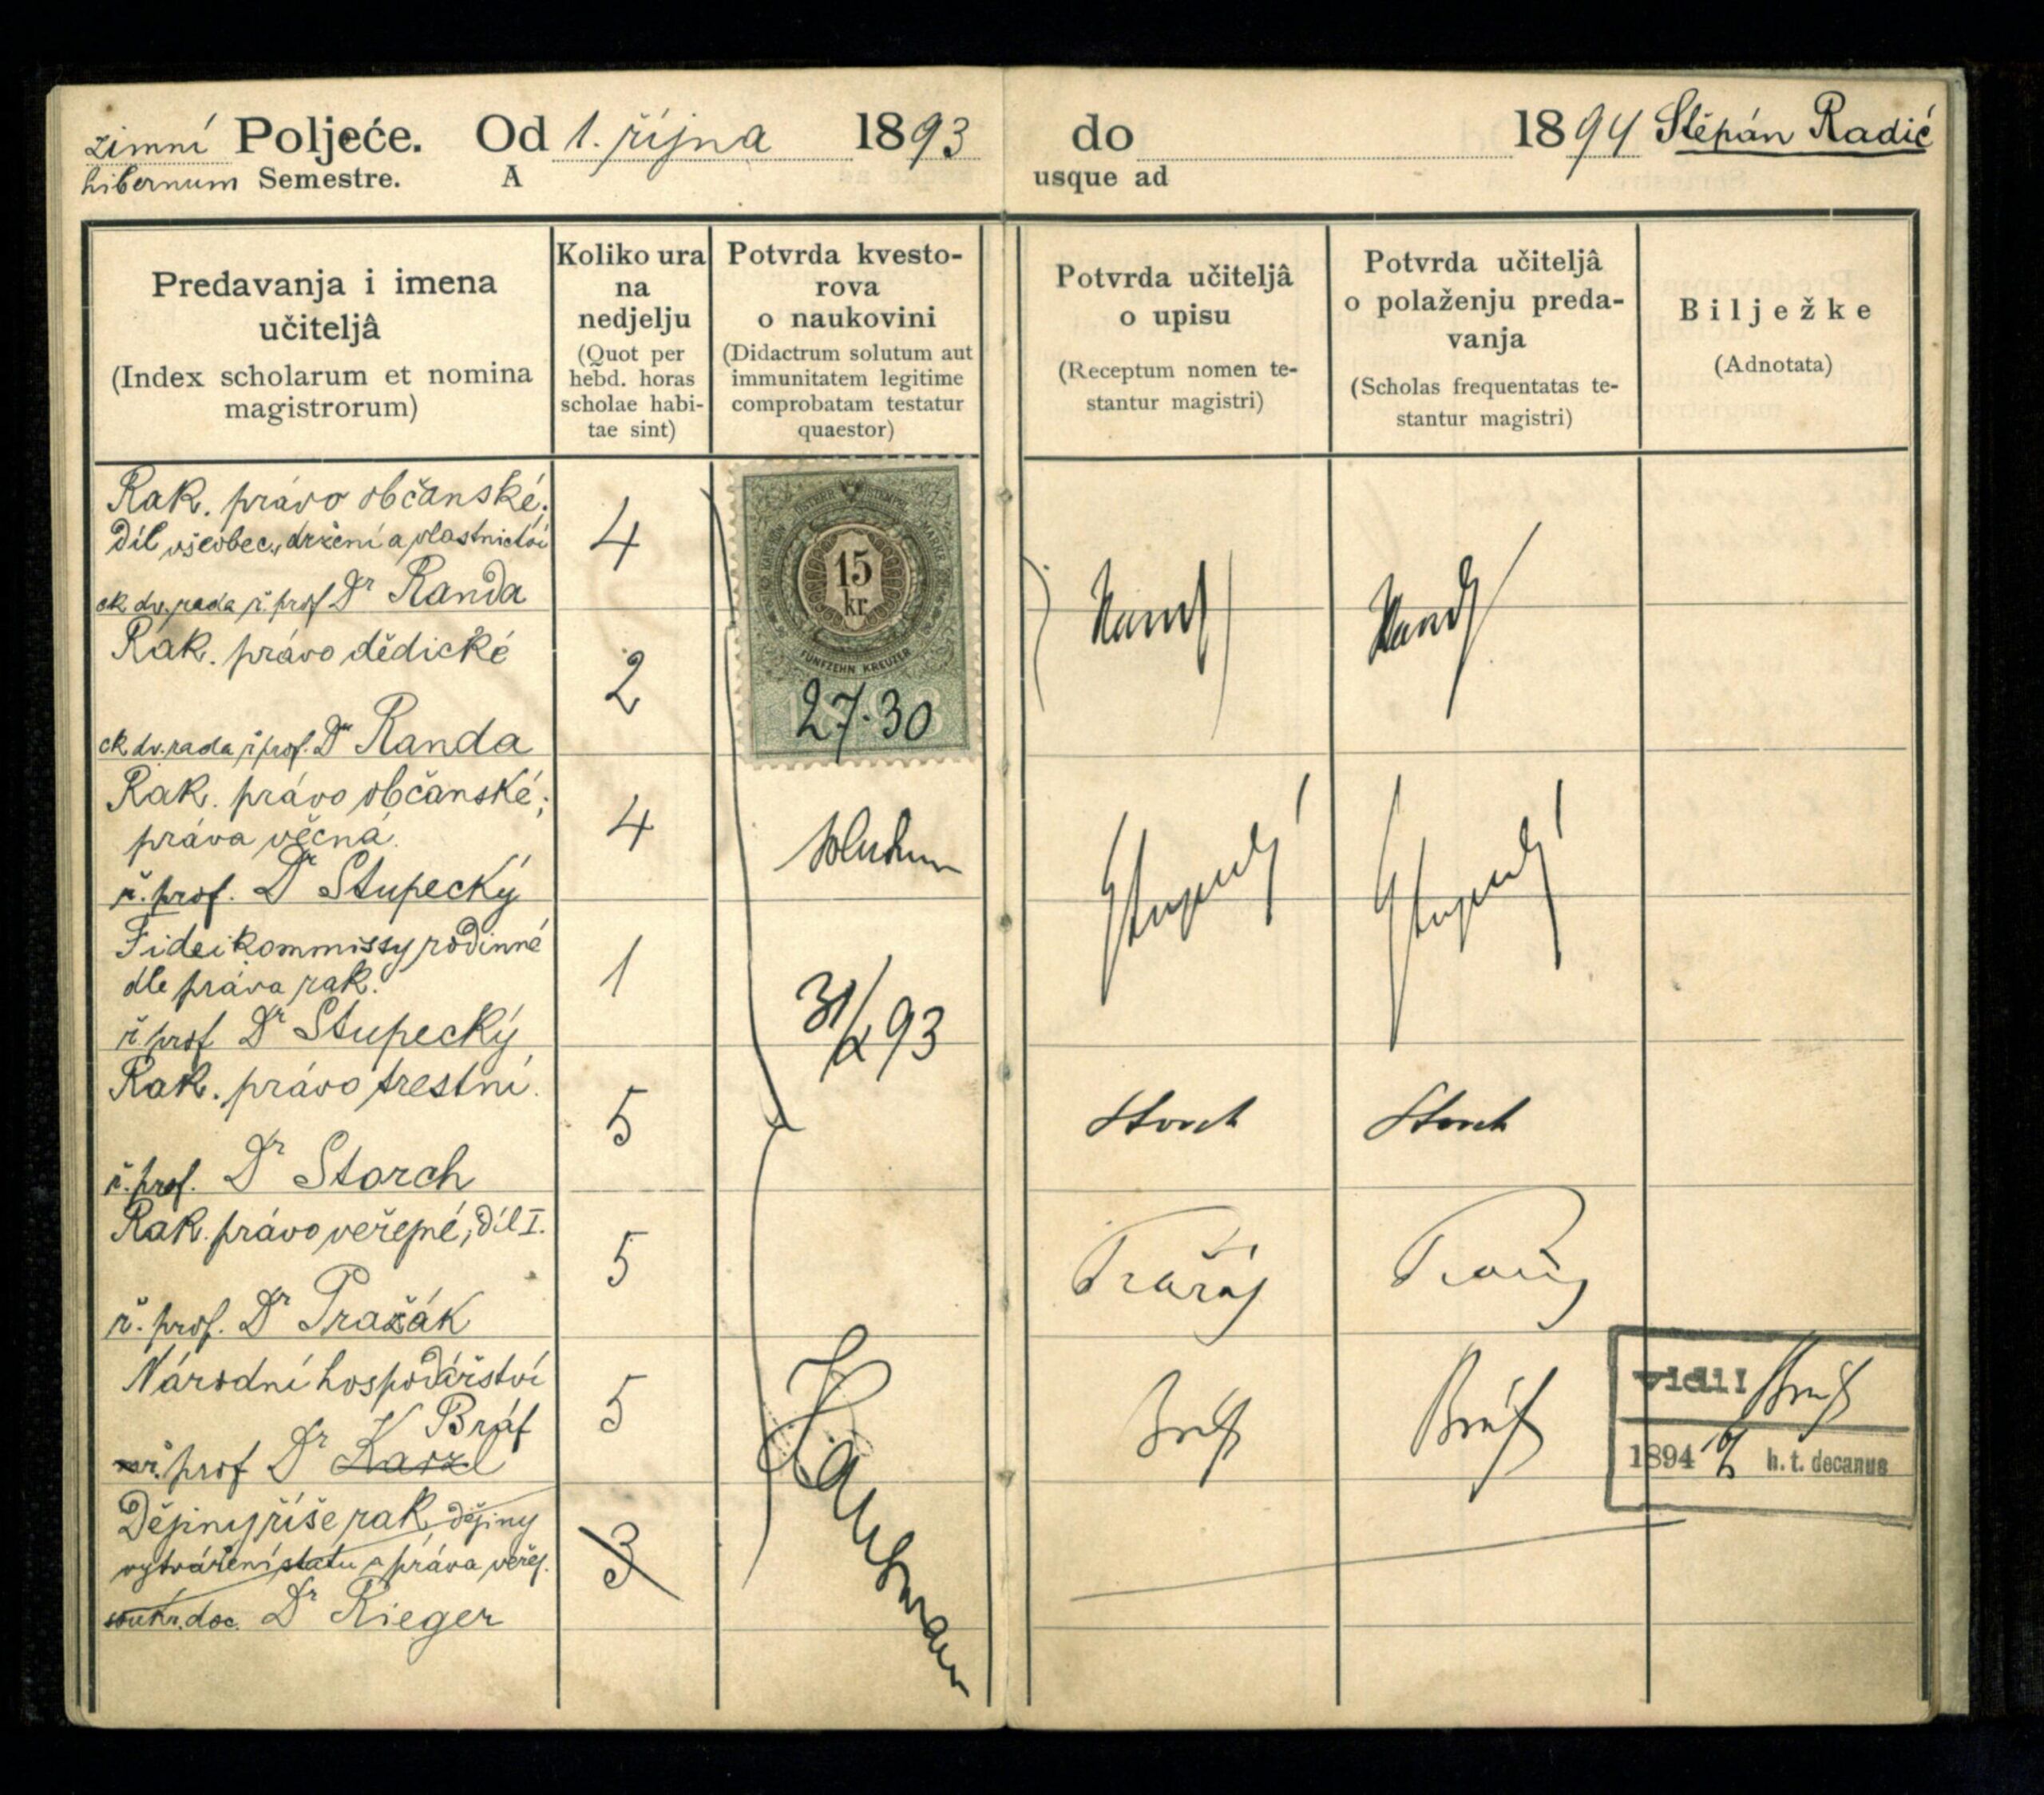 zimní Poljeće. Od 1. října 1893 do 1894 Štěpán Radić
hibernum Semestre. A usque ad
Predavanja i imena
učiteljâ
(Index scholarum et nomina
magistrorum)
Koliko ura
na
nedjelju
(Quot per
hebd. horas
scholae habi-
tae sint)
Potvrda kvesto-
rova
o naukovini
(Didactrum solutum aut
immunitatem legitime
comprobatam testatur
quaestor)
Potvrda učiteljâ
o upisu
(Receptum nomen te-
stantur magistri)
Potvrda učiteljâ
o polaženju preda-
vanja
(Scholas frequentatas te-
stantur magistri)
Bilježke
(Adnotata)
Rak. právo občanské;
díl všeobec., držení a vlastnictví
ck dv. rada ř. prof Dr Randa
4
15
kr.
FÜNFZEHN KREUZER
27·30
Rak. právo dědické
ck dv. rada ř. prof. Dr Randa
2
Rak. právo občanské;
práva věcná.
ř. prof. Dr Stupecký
4
solutum
Fideikommissy rodinné
dle práva rak.
ř. prof Dr Stupecký
1
31/X 93
Rak. právo trestní.
ř. prof. Dr Storch
5
Storch
Storch
Rak. právo veřejné, díl I.
ř. prof. Dr Pražák
5
Pražák
Pražák
Národní hospodářství
Bráf
ř. prof Dr Kaizl
5
Bráf
Bráf
vidi! Bráf
1894 h. t. decanus
Dějiny říše rak. dějiny
vytváření státu a práva veřej.
soukr. doc. Dr Rieger
3